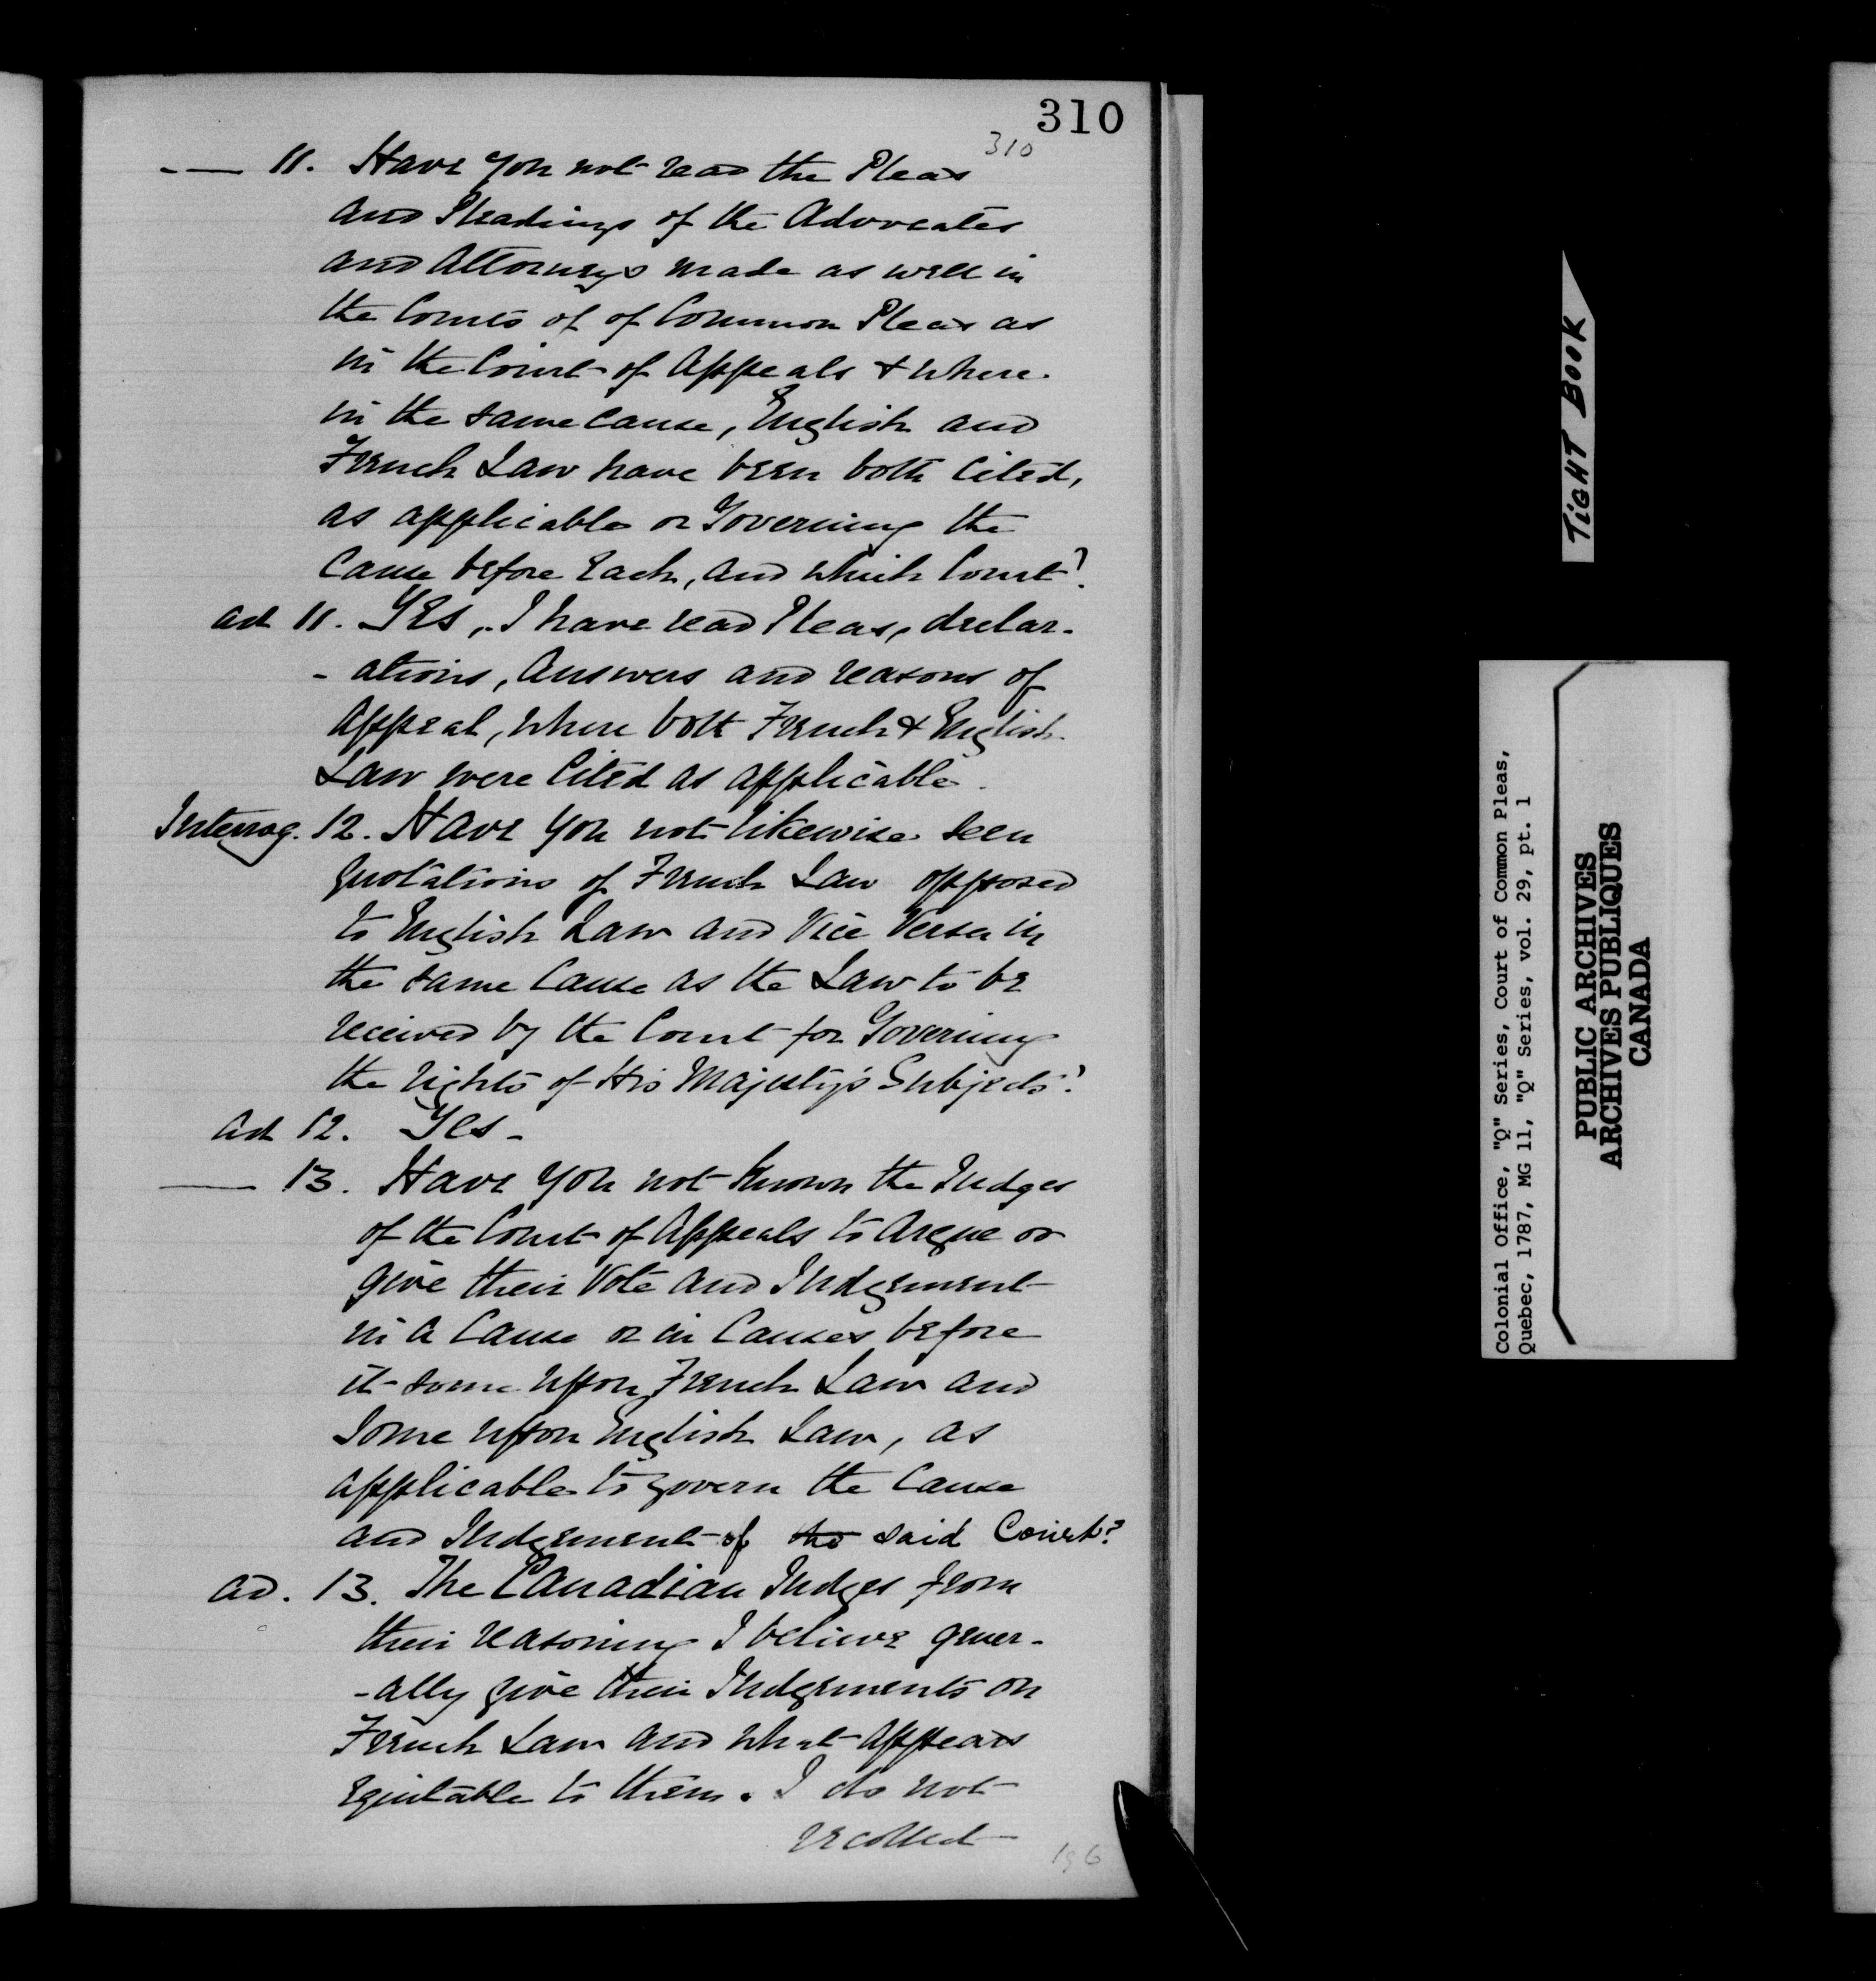 310
310
—— 11. Have you not read the Pleas
and Pleadings of the Advocates
and Attorneys made as well in
the Courts of of Common Pleas as
in the Court of Appeals & where
in the same cause, English and
French Law have been both cited,
as applicable or Governing the
Cause before Each, and which Court?
ad 11. Yes, I have read Pleas, declar-
- ations, Answers and reasons of
Appeal, where both French & English
Law were Cited as applicable.
Interrog. 12. Have you not likewise seen
quotations of French Law opposed
to English Law and Vice Versa in
the same Cause as the Law to be
received by the Court for Governing
the rights of His Majesty's Subjects?
ad 12. Yes -
—— 13. Have you not known the Judges
of the Court of Appeals to Argue or
give their Vote and Judgement
in a Cause or in Causes before
it some upon French Law and
Some upon English Law, as
applicable to govern the Cause
and Judgement of the said Court?
ad. 13. The Canadian Judges from
their reasoning I believe gener-
-ally give their Judgements on
French Law and what Appears
equitable to them. I do not
recollect
196
TIGHT BOOK
Colonial Office, "Q" Series, Court of Common Pleas,
Quebec, 1787, MG 11, "Q" Series, vol. 29, pt. 1
PUBLIC ARCHIVES
ARCHIVES PUBLIQUES
CANADA